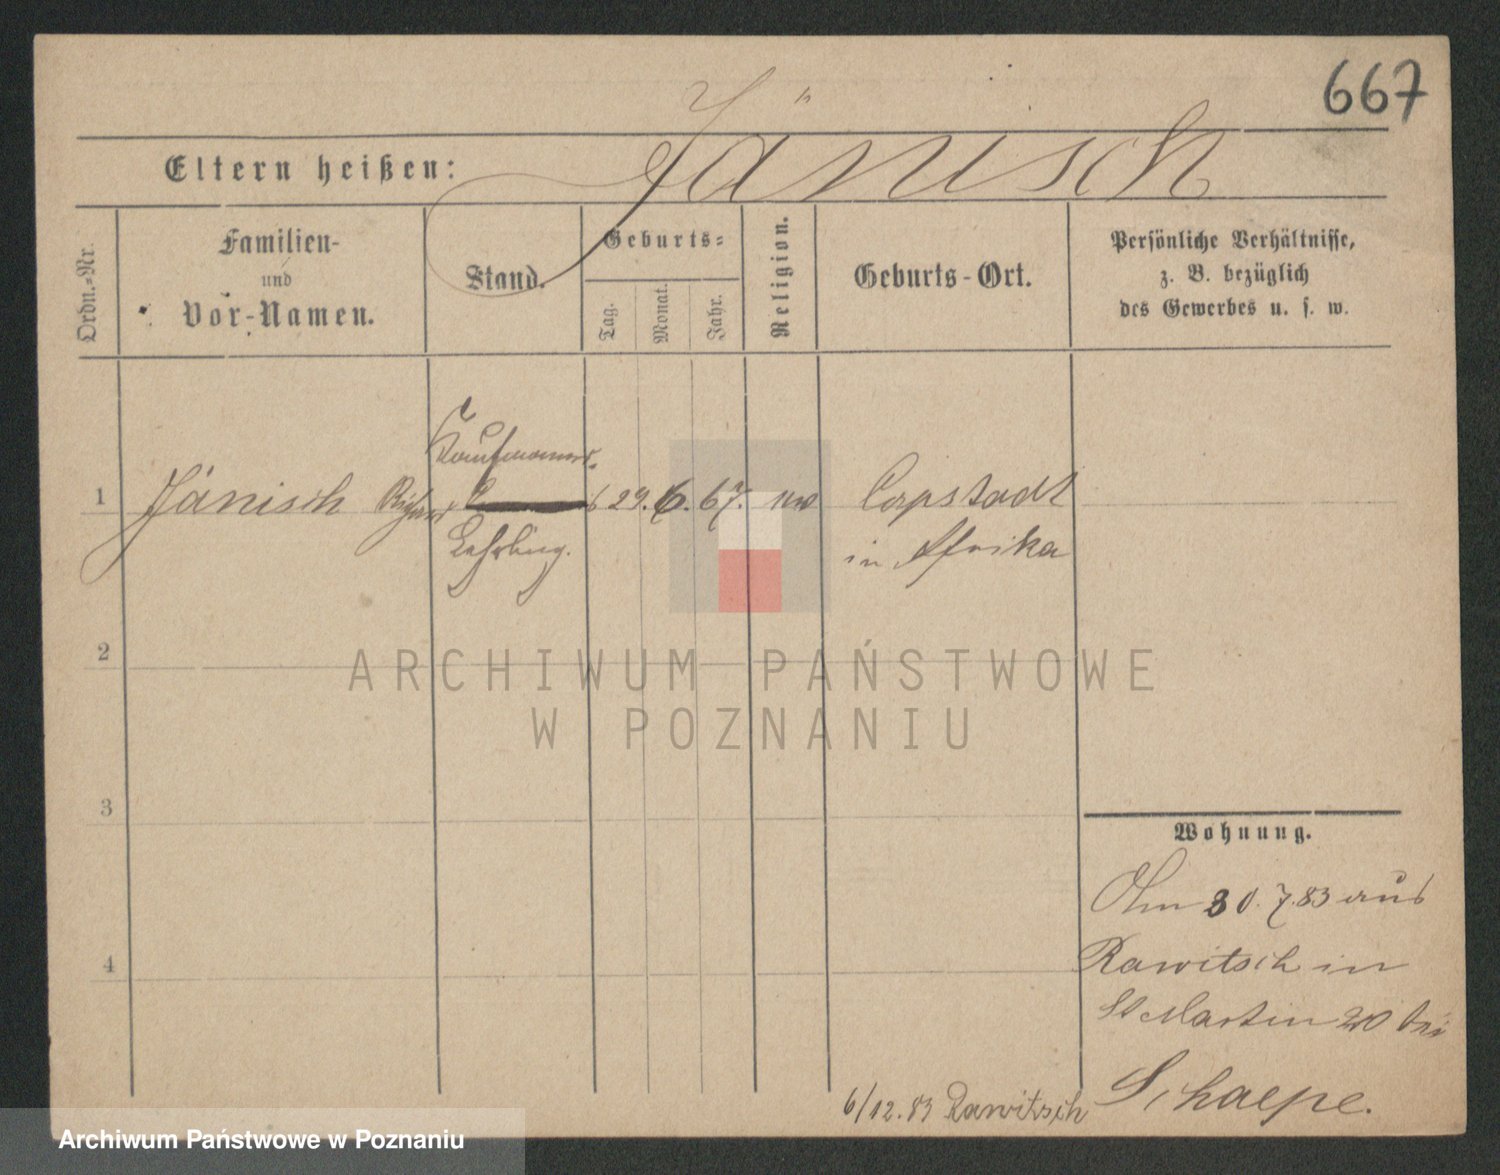 667
Jänisch
Eltern heißen:
Ordn.-Nr.
Familien-
und
Vor-Namen.
Stand.
Geburts-
Tag.
Monat.
Jahr.
Religion.
Geburts-Ort.
Persönliche Verhältnisse,
z. B. bezüglich
des Gewerbes u. s. w.
Kaufmanns-
1 Jänisch Richard 29. 6. 67. Capstadt
Lehrling. in Afrika
2
ARCHIWUM PAŃSTWOWE
W POZNANIU
3
Wohnung.
30. 7. 83 aus
4
Rawitsch in
St Martin 20 bei
Schaepe.
6/12. 83 Rawitsch
Archiwum Państwowe w Poznaniu